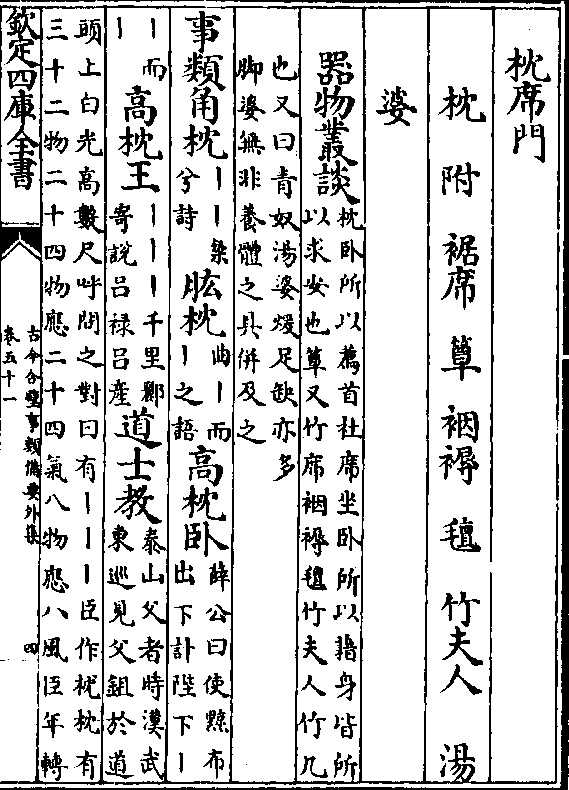 枕席門
枕 附 裾席 簟 裀褥 氊 竹夫人 湯
婆
器物叢談 枕卧所以薦首社席坐卧所以藉身皆所
以求安也簟又竹席裀褥氊竹夫人竹几
也又曰青奴湯婆煖足缺亦多
脚婆無非養體之具併及之
事類角枕 丨丨粲
兮詩 肱枕 曲丨而
丨之語 高枕卧 薛公曰使黥布
出下計陛下丨
丨而
丨 高枕王 丨丨丨千里酈
寄說吕禄吕産 道士教 泰山父者時漢武
東巡見父鉏於道
頭上白光高數尺呼問之對曰有丨丨丨臣作枕枕有
三十二物二十四物應二十四氣八物應八風臣年轉
欽定四庫全書
古今合璧事類備要外集
卷五十一
四